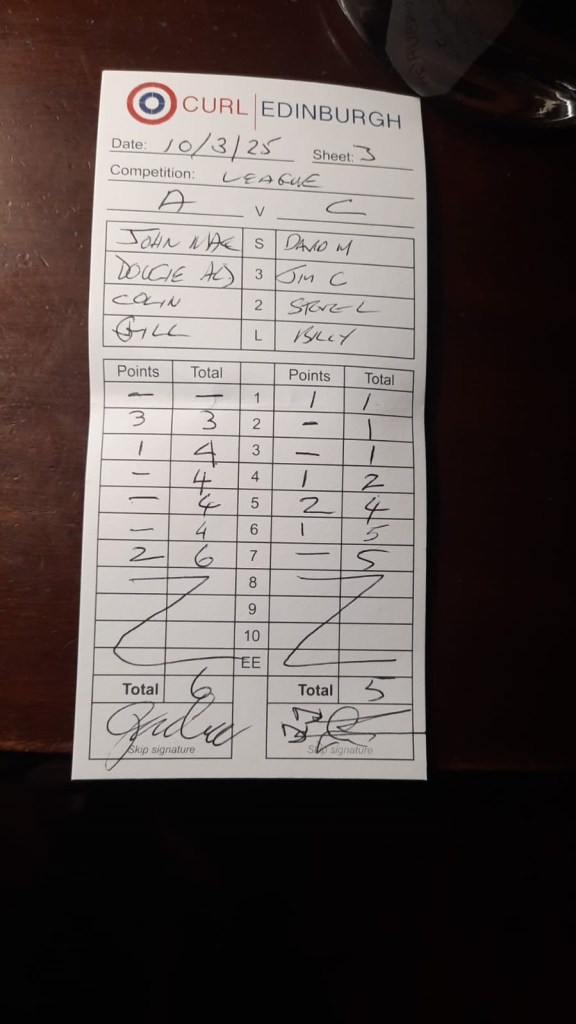 CURL EDINBURGH
Date: 10/3/25 Sheet: 3
Competition: LEAGUE
A V C
JOHN S DAVID M
DOUGIE 3 JIM C
COLIN 2 STEVE L
GILL L BILLY
Points Total Points Total
– – 1 1 1
3 3 2 – 1
1 4 3 – 1
– 4 4 1 2
– 4 5 2 4
– 4 6 1 5
2 6 7 – 5
8
9
10
EE
Total 6 Total 5
Skip signature Skip signature